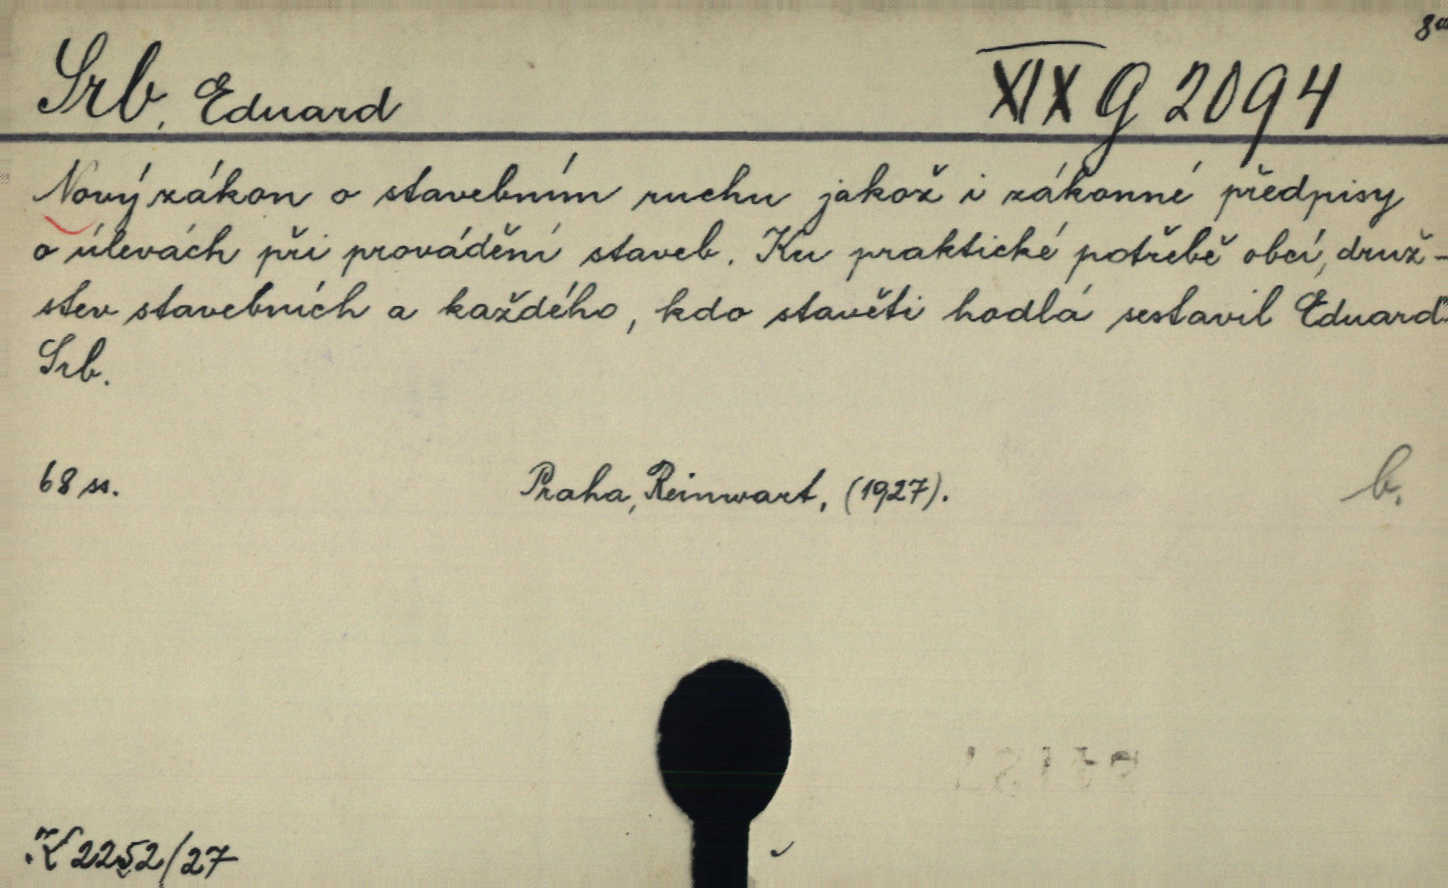 8°
Srb, Eduard
XIX G 2094
Nový zákon o stavebním ruchu jakož i zákonné předpisy
o úlevách při provádění staveb. Ku praktické potřebě obcí, druž-
stev stavebních a každého, kdo stavěti hodlá sestavil Eduard
Srb.
68 ss.
Praha, Reinwart, (1927).
b.
K 2252/27